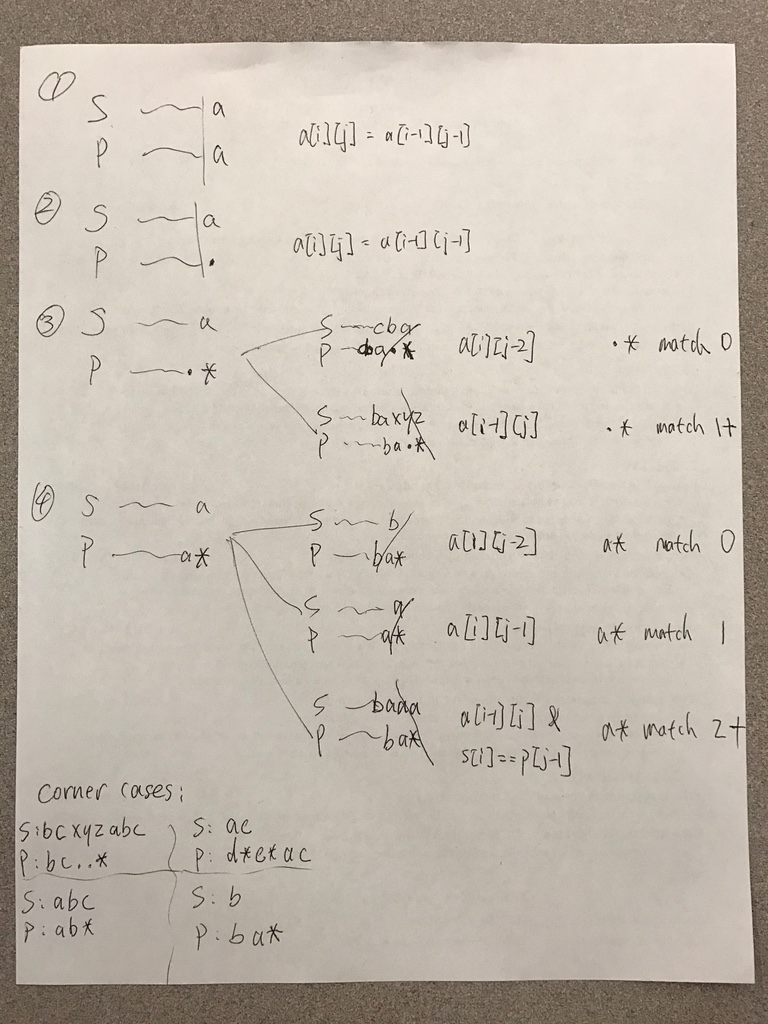 ①
S a
P a
a[i][j] = a[i-1][j-1]
②
S a
P .
a[i][j] = a[i-1][j-1]
③
S a
P .*
S cba
P ba.*
a[i][j-2]
.* match 0
S baxyz
P ba.*
a[i-1][j]
.* match 1+
④
S a
P a*
S b
P ba*
a[i][j-2]
a* match 0
S a
P a*
a[i][j-1]
a* match 1
S baaa
P ba*
a[i-1][j] &
s[i]==p[j-1]
a* match 2+
Corner cases:
S:bcxyzabc
P:bc..*
S: ac
P: d*e*ac
S: abc
P: ab*
S: b
P: ba*